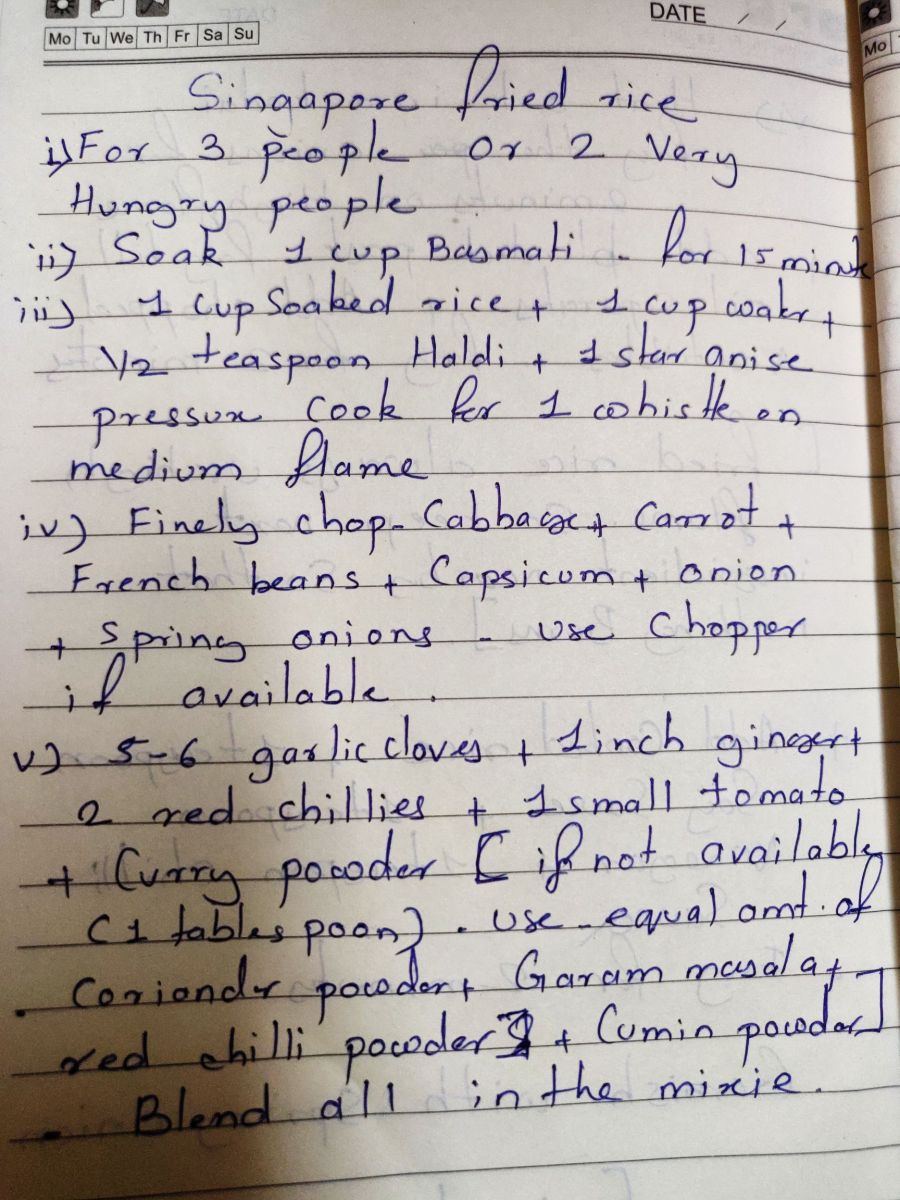 DATE / /
Mo Tu We Th Fr Sa Su
Mo
Singapore fried rice
i) For 3 people or 2 Very
Hungry people
ii) Soak 1 cup Basmati - for 15 minute
iii) 1 cup Soaked rice + 1 cup water +
1/2 teaspoon Haldi + 1 star anise
pressure cook for 1 whistle on
medium flame
iv) Finely chop - Cabbage + Carrot +
French beans + Capsicum + onion
+ Spring onions - use Chopper
if available.
v) 5-6 garlic cloves + 1 inch ginger +
2 red chillies + 1 small tomato
+ Curry powder [ if not available
(1 tablespoon) . use - equal amt. of
. Coriander powder + Garam masala +
red chilli powder + Cumin powder]
- Blend all in the mixie.